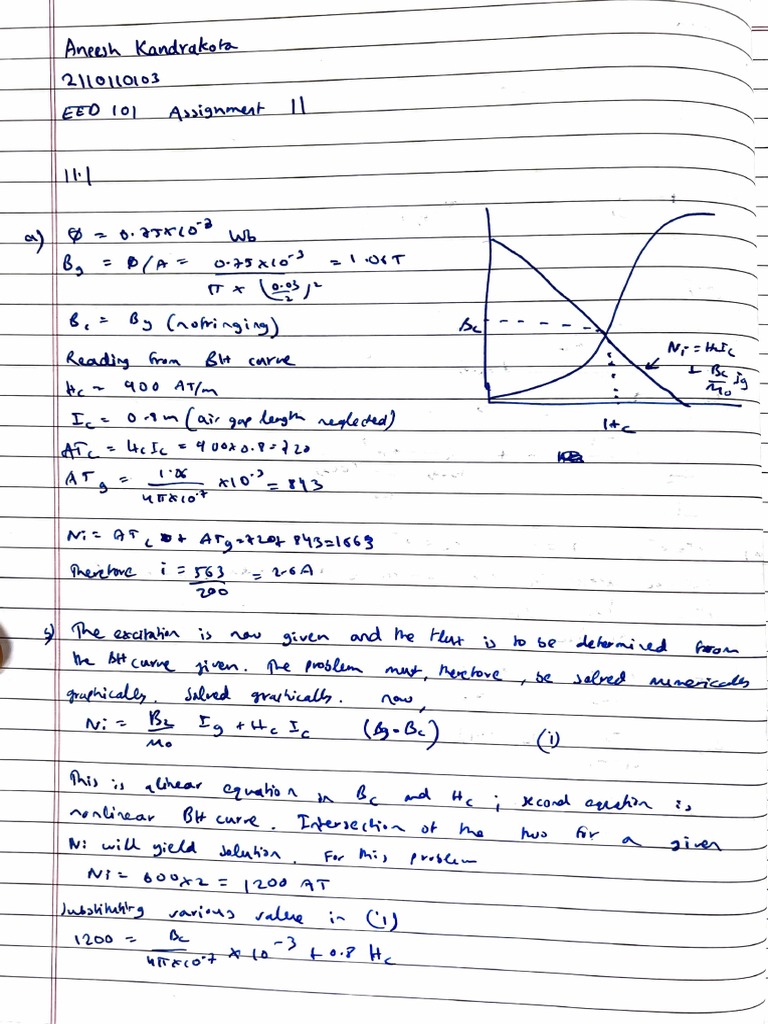 Aneesh Kandrakota
2110110103
EED 101 Assignment 11
11.1
a) Φ = 0.75x10⁻³ Wb
Bg = Φ/A = 0.75x10⁻³ / π x (0.03/2)² = 1.06T
Bc = Bg (nofringing)
Reading from BH curve
Hc = 900 AT/m
Ic = 0.8m (air gap length neglected)
ATc = HcIc = 900x0.8=720
ATg = 1.06 / 4πx10⁻⁷ x10⁻³ = 843
Ni = ATc + ATg=720+ 843=1563
Therefore i = 563/200 = 2.6A
Bc
Ni = HcIc
+ Bc/μ0 Ig
Hc
The excitation is now given and the flux is to be determined from
the BH curve given. The problem must, therefore, be solved numerically
graphically. Solved graphically. now,
Ni = Bc/μ0 Ig + Hc Ic (Bg=Bc) (i)
This is a linear equation in Bc and Hc ; second equation is
nonlinear BH curve. Intersection of the two for a given
Ni will yield solution. For this problem
Ni = 600x2 = 1200 AT
Substituting various value in (i)
1200 = Bc / 4πx10⁻⁷ x 10⁻³ + 0.8 Hc